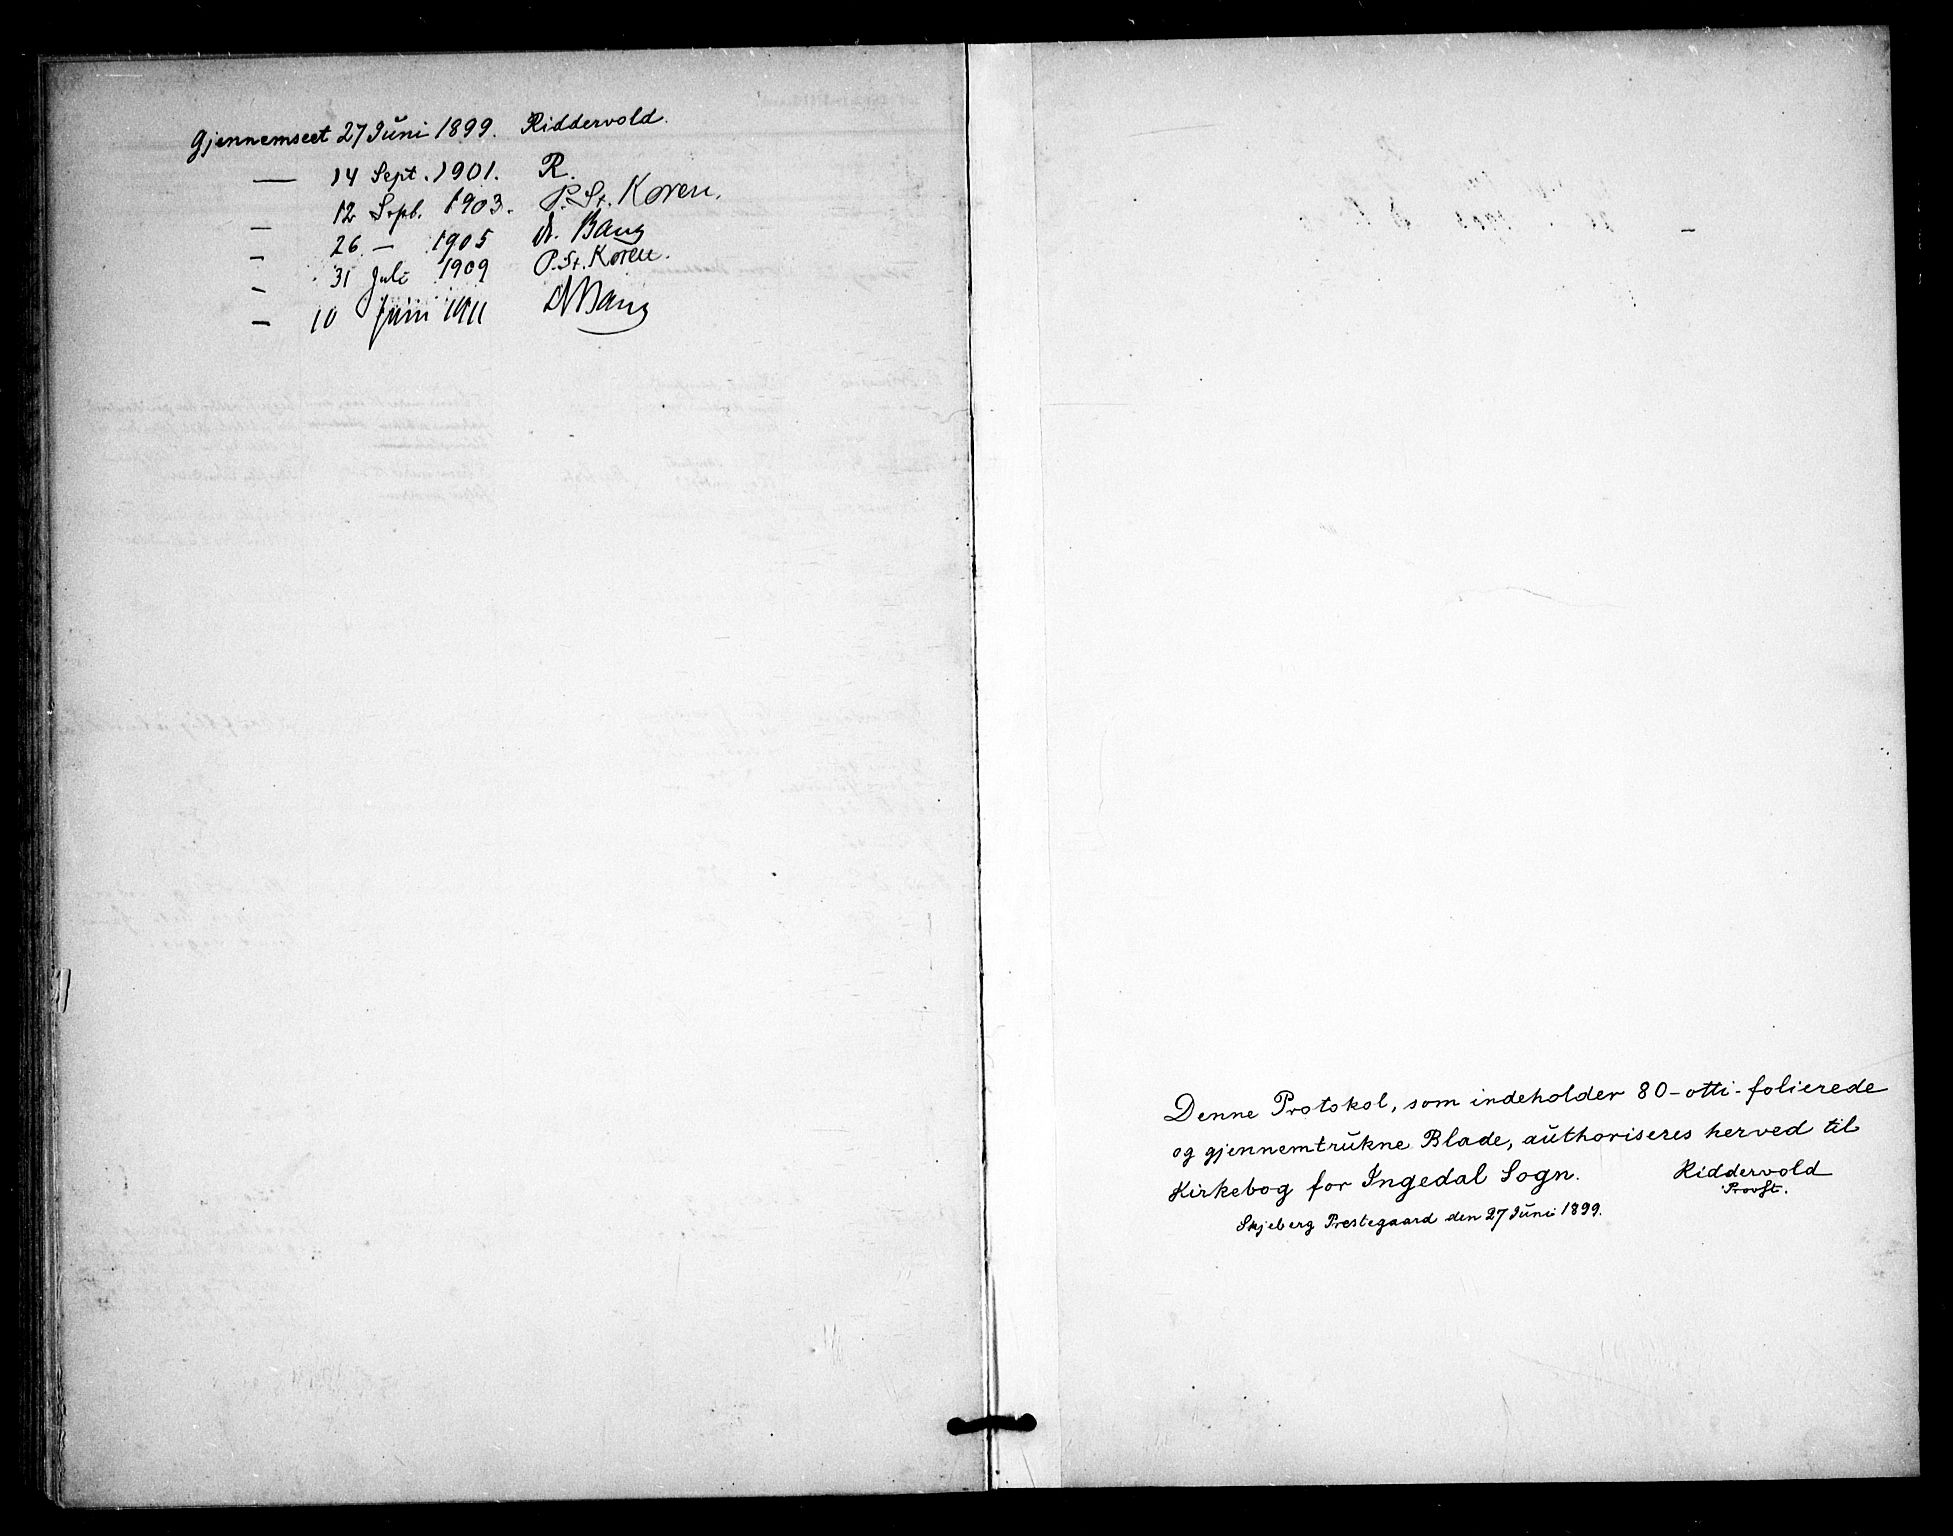 Gjennemseet 27 Juni 1899. Riddervold.
— 14 Sept. 1901. R.
— 12 Sept. 1903. P. St. Koren.
— 26 — 1905 A. Bang
— 31 Juli 1909 P. St. Koren.
— 10 Juni 1911 A Bang
Denne Protokol, som indeholder 80 - otti - folierede
og gjennemtrukne Blade, authoriseres herved til
Kirkebog for Ingedal Sogn. Riddervold
Provst.
Skjeberg Prestegaard den 27 Juni 1899.